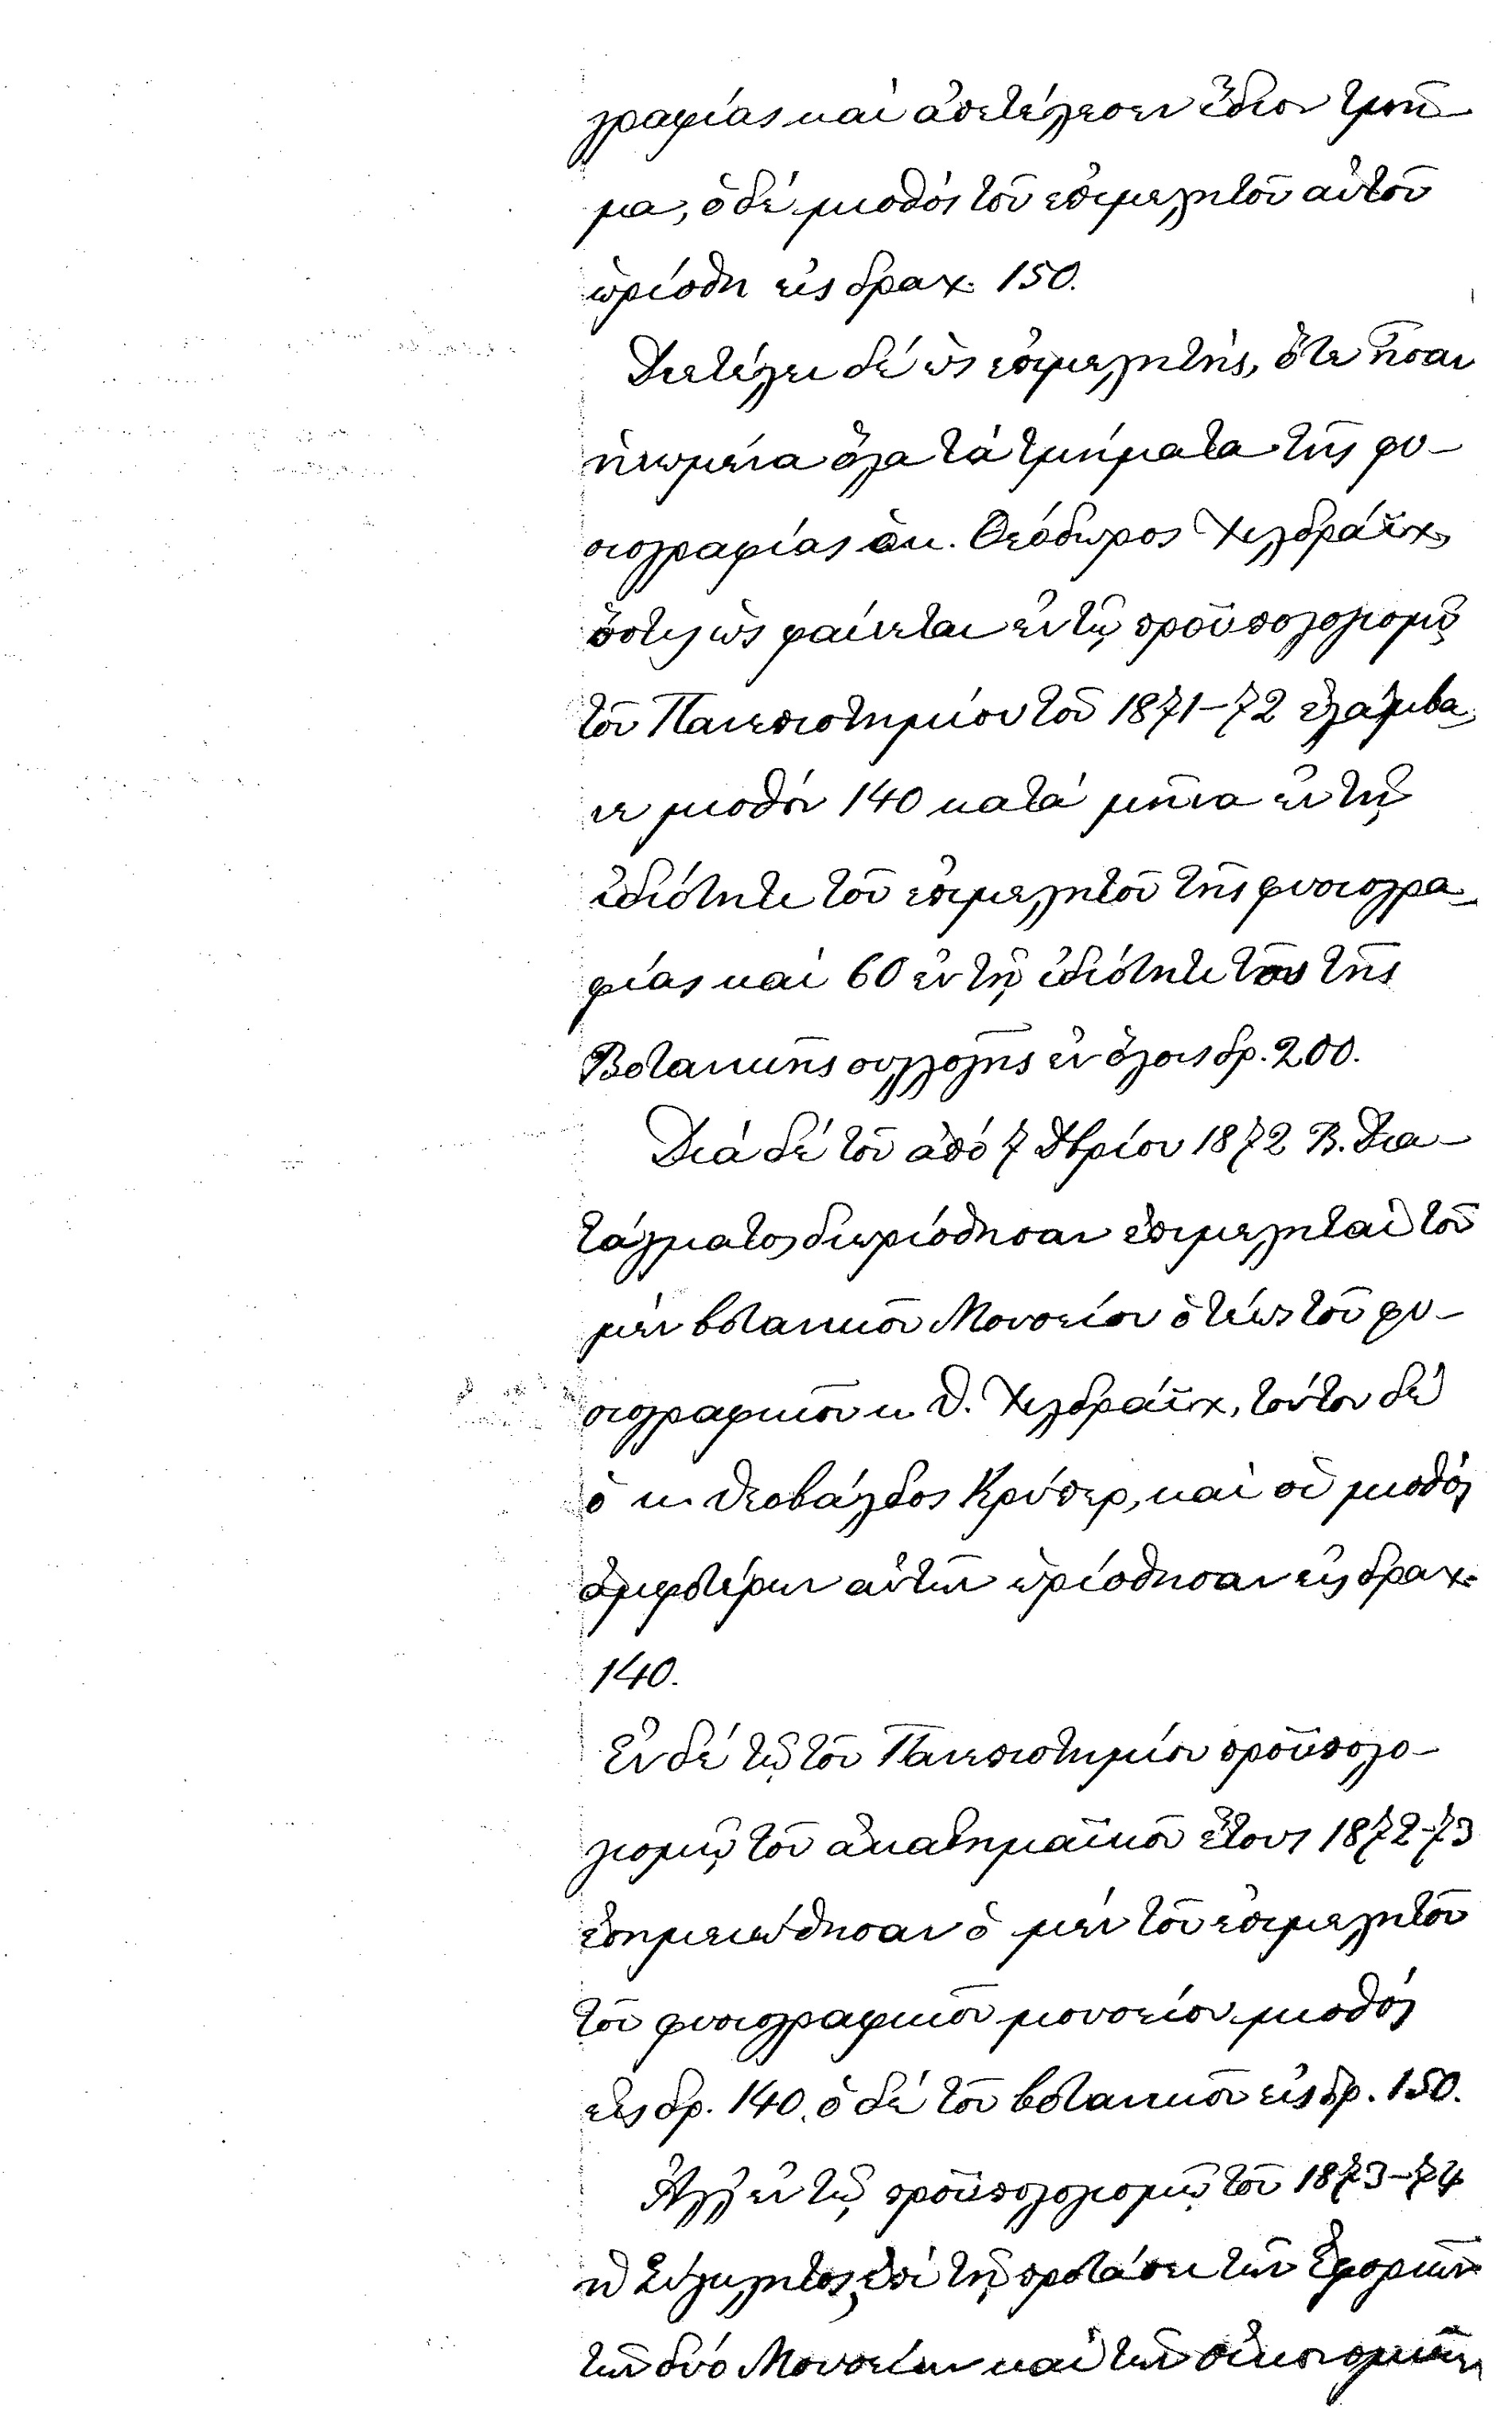 γραφίας καὶ ἀπετέλεσεν ἴδιον τμῆ
μα, ὁ δέ μισθός τοῦ ἐπιμελητοῦ αὐτοῦ
ὡρίσθη εἰς δραχ. 150.
Διετέλει δέ ὡς ἐπιμελητής, ὅτε ἦσαν
ἡνωμένα ὅλα τὰ τμήματα τῆς φυ-
σιογραφίας ὁ κ. Θεόδωρος Χελδράϊχ,
ὅστις ὡς φαίνεται ἐν τῷ προϋπολογισμῷ
τοῦ Πανεπιστημίου τοῦ 1871-72 ἐλάμβα
νε μισθόν 140 κατά μῆνα ἐν τῇ
ἰδιότητι τοῦ ἐπιμελητοῦ τῆς φυσιογρα-
φίας καὶ 60 ἐν τῇ ἰδιότητι τοῦ τῆς
Βοτανικῆς συλλογῆς ἐν ὅλοις δρ. 200.
Διά δέ τοῦ ἀπό 7 Δβρίου 1872 Β. Δια-
τάγματος διωρίσθησαν ἐπιμεληταὶ τοῦ
μέν βοτανικοῦ Μουσείου ὁ τέως τοῦ φυ-
σιογραφικοῦ κ. Θ. Χελδράϊχ, τούτου δέ
ὁ κ. Θεοβάλδος Κρύπερ, καὶ οἱ μισθοί
ἀμφοτέρων αὐτῶν ὡρίσθησαν εἰς δραχ.
140.
Ἐν δέ τῷ τοῦ Πανεπιστημίου προϋπολο-
γισμῷ τοῦ ἀκαδημαϊκοῦ ἔτους 1872-73
ἐσημειώθησαν ὁ μέν τοῦ ἐπιμελητοῦ
τοῦ φυσιογραφικοῦ μουσείου μισθός
εἰς δρ. 140, ὁ δέ τοῦ βοτανικοῦ εἰς δρ. 150.
Ἀλλ' ἐν τῷ προϋπολογισμῷ τοῦ 1873-74
ἡ Σύγκλητος, ἐπί τῇ προτάσει τῶν Ἐφοριῶν
τῶν δύο Μουσείων καὶ τῶν οἰκονομικῶν